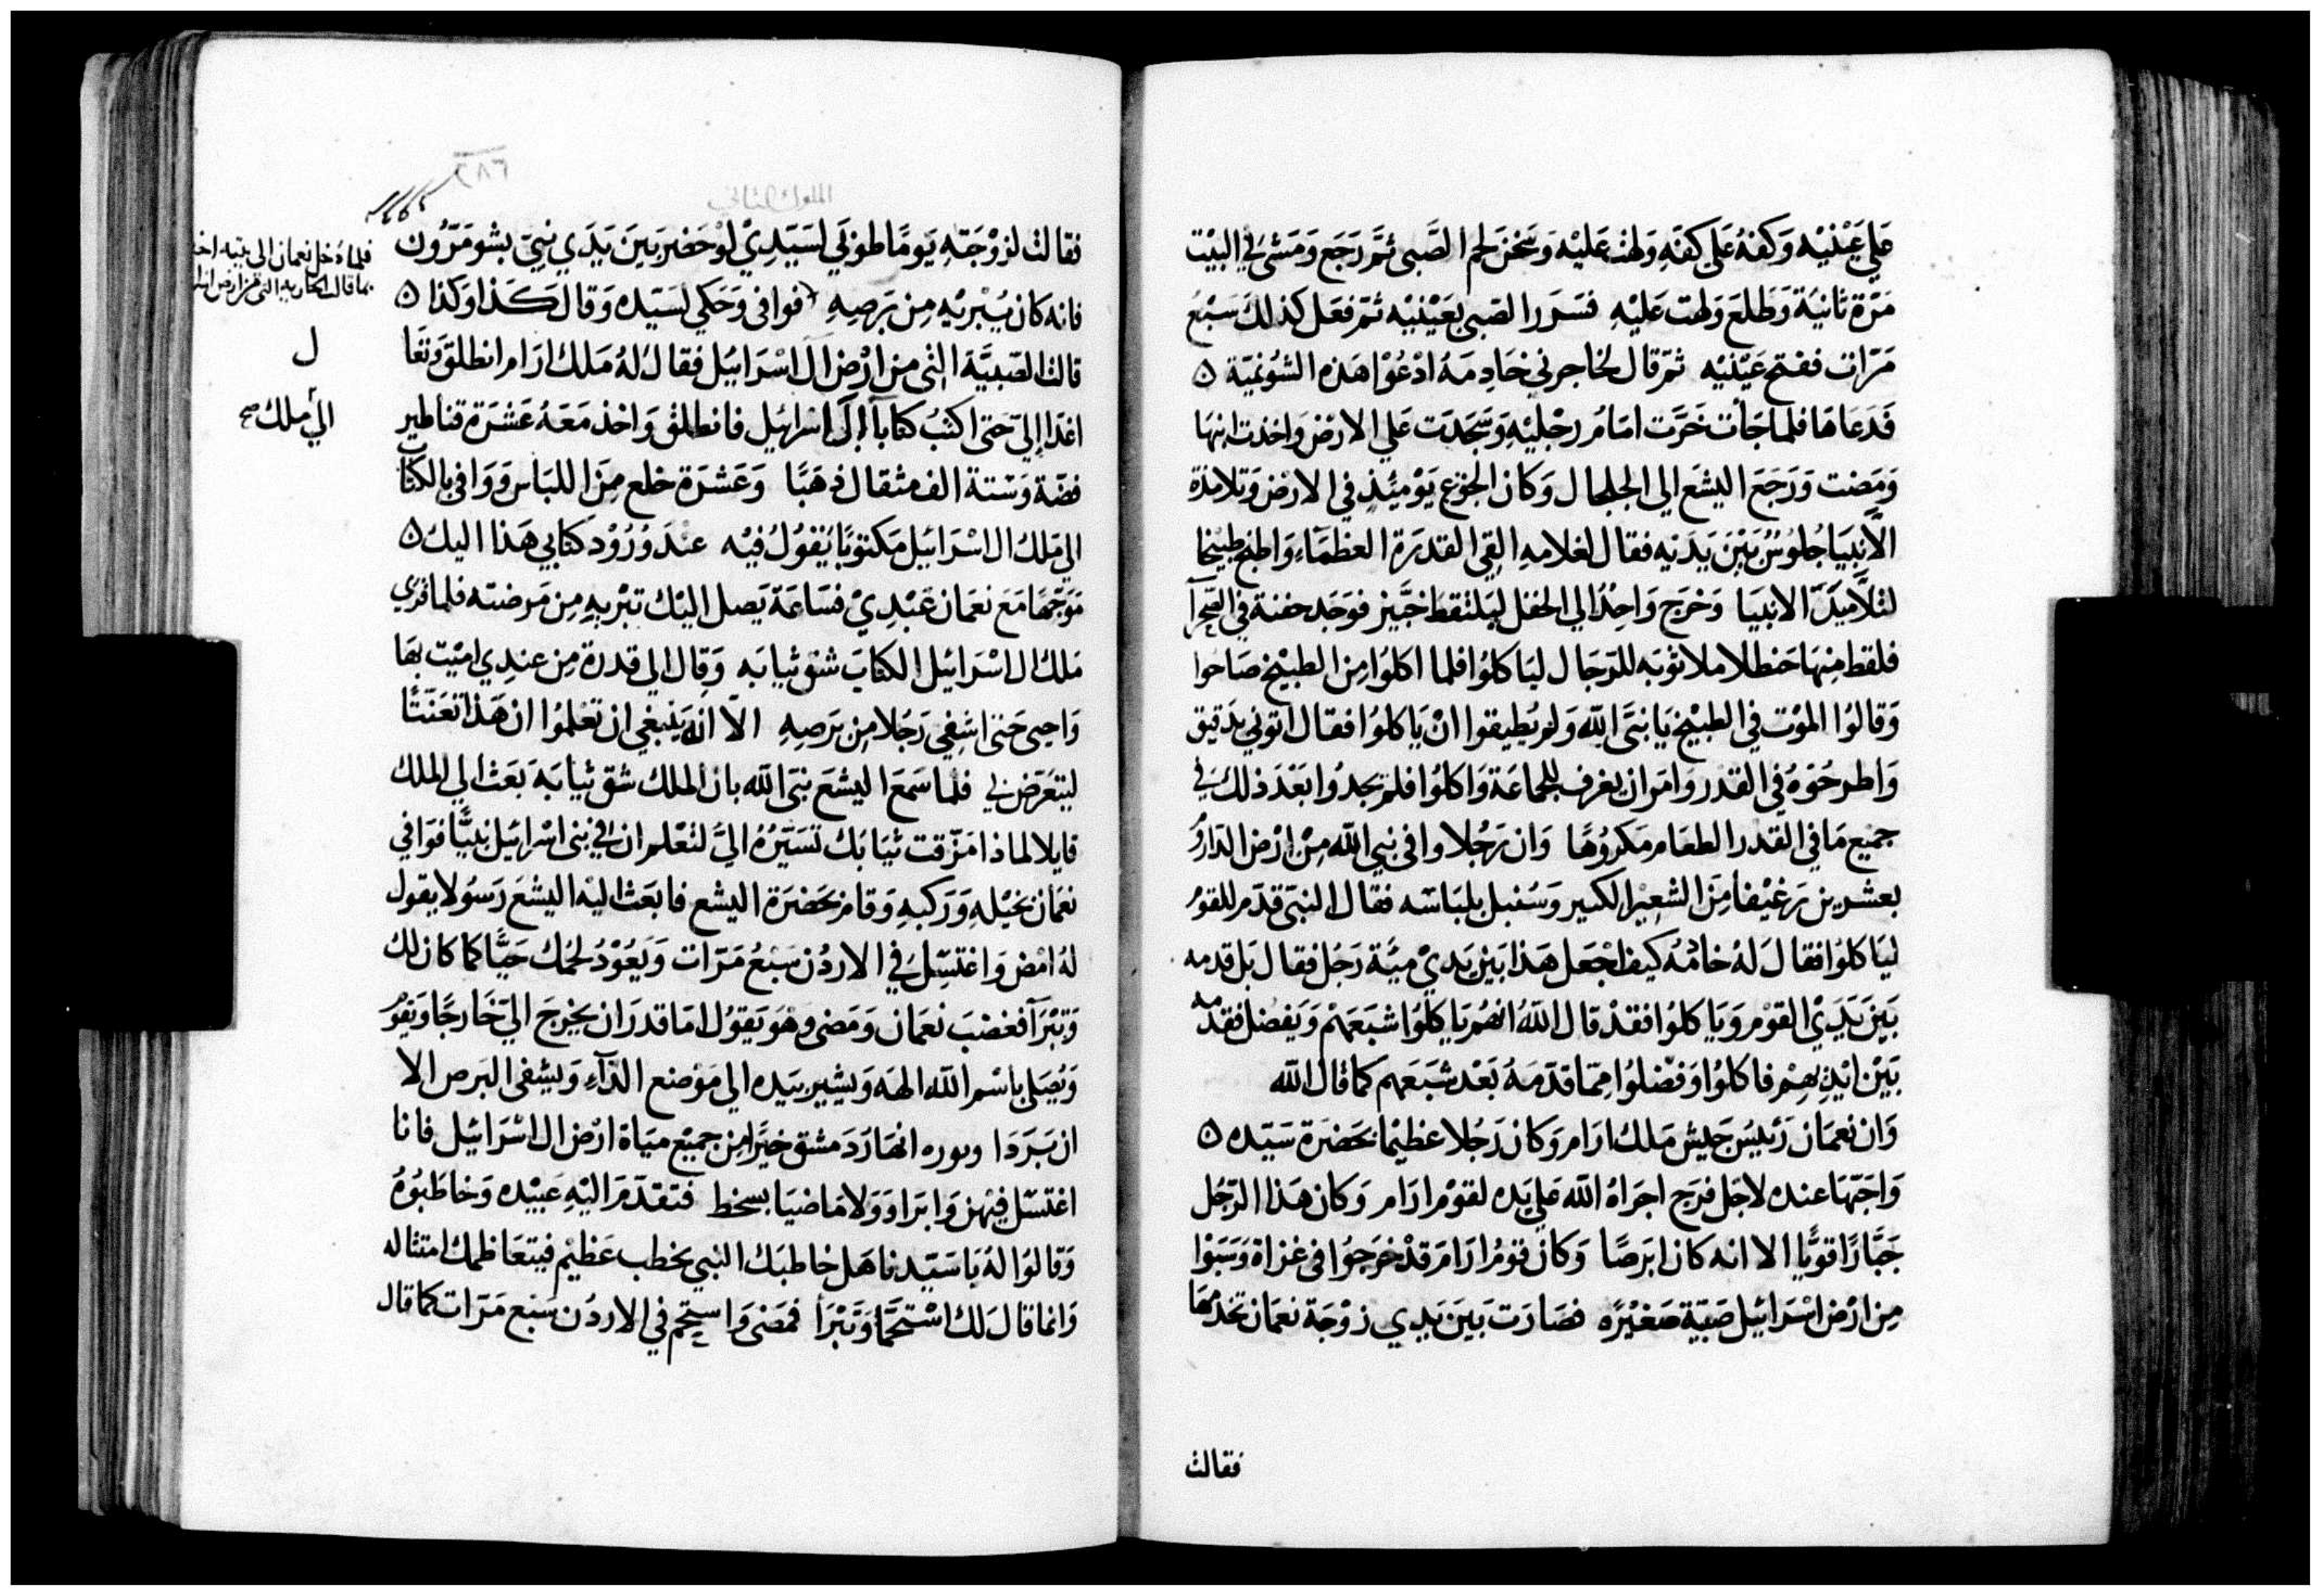 علي عَيْنيْه وَكفهُ عَلي كفهِ ولهث عَليْه وَسَخن لحم الصَّبى ثمَّ رَجَع وَمَشى في البيْت
مَرّة ثانيَة وَطلعَ ولهت عَليْهِ فسَرر الصَبى بعَيْنيْه ثمّ فعَل كذلكَ سَبْع
مَرّات ففتح عَيْنيْه ثمّ قال لخاجرني خَادِمَهُ ادْعُوْا هَذه الشونميّة ه
فَدَعَاهَا فلما جَأت خَرَّت امَامُ رجْليْهِ وَسَجَدَت عَلي الارْض وَاخذت ابنهَا
وَمَضت وَرَجَعَ اليشَع الي الجلجال وَكان الجوع يَوْمئِذٍ في الارْض وَتلامذة
الاَّنبيَا جُلوُسٌ بَيْنَ يَدَيه فقال لغلامهِ القِي القدرَة العظمَاءِ وَاطبخ طبيْخا
لتلاَّميَذ الانبيَا وَخرَج وَاحِدٌ الي الحقل ليَلتقط خبَّيز فوَجَد جفنة في الصَّحرآ
فلقط مِنهَا حَنظلا ملا ثوْبَه للرّجَال ليَاكلوُا فلما اكلوُا مِن الطبيْخ صَاحوا
وَقالوُا الموْت في الطبيْخ يَا نبىَّ الله وَلم يُطيقوا انْ يَاكلوُا فقال اتوني بدَقيق
وَاطرحُوَهُ في القدر وَامَر ان يغرف للجمَاعَة وَاكلوُا فلم يجدُوا بَعْدَ ذلك في
جميع مَا في القدر الطعَام مَكروُهًا وَان رَجُلا وافى نبي الله مِنْ ارْض الدّارُوُ
بعشرين رَغيْفا مِنَ الشعِيْر الكبير وَسُنبل بلبَاسَه فقال النبىّ قدّم للقوْم
ليَاكلوُا فقالَ لهُ خادمُهُ كيف اجْعَل هَذا بَيْن يَديْ ميَّة رَجُل فقال بَل قدمه
بَيْن يَدَيْ القوْم وَيَاكلوُا فقدْ قال اللهُ انهُم يَاكلوُا شبَعَهُم وَيَفضل فقدّمه
بَيْن ايْديْهِمْ فاكلوُا وَفضّلوُا مِمّا قدّمَهُ بَعْد شبَعَهم كما قال الله
وَان نعمَان رَئيسَ جَيش مَلك ارَام وَكان رَجُلا عظيْما بحَضرَة سَيّده ه
وَاجَهّا عنده لاجَل فرَج اجرَاهُ الله عَلي يَده لقوْم ارَام وَكان هَذا الرّجُل
جَبَّارًا قوُيًّا الا انه كان ابرَصًا وَكان قوْمُ ارَام قدْ خرَجوُا فى غزاة وَسَبَوْا
مِن ارْض اسْرَائيل صَبيّة صَغيْرَه فصَارَت بَيْنَ يَدِي زوْجَة نعمَان تخدمُهَا
فقالت
الملوك الثاني
٢٨٦
فقالت لزوْجَتهِ يَومًا طوْبَي لسَيّدِيْ لوْ حَضرَ بَيْنَ يَدَي نبيّ بشومَرُون
فانه كان يُبْرئيهِ مِن بَرَصِهِ فوافى وَحَكي لسَيّده وَقالَ كَذا وَكذا ه
قالت الصّبيَّة التى من ارْض ال اسْرَائيل فقالُ لهُ مَلك ارَام انطلقَ وَتعَا
اغدَا اِليّ حَتى اكتبُ كتابا الَي اسْرائيل فانطلقْ وَاخذ مَعَهُ عَشرَة قناطير
فضّة وَستة الف مثقال ذهَبًا وَعَشرَة خلع مِنَ اللبَاس وَوَافى بالكتاب
الي مَلك ال اسْرَائيل مَكتوْبًا يَقولُ فيْه عندَ وُرُوْد كتابي هَذا اليك ه
مَوَجّهًا مَع نعمَان عَبْدِيْ فسَاعَة يَصل اليْك تبْريهِ مِن مَرَضته فلما قري
مَلك ال اسْرَائيل الكتابَ شقق ثيَابَه وَقال الي قدرة مِن عندي اميْت بهَا
وَاحيى حَتى اشفِى رَجُلا مِن بَرَصِهِ الاّ انهُ يَنبغي ان تعْلمُوا ان هَذا تعَنّتًا
ليتعَرّض لي فلما سَمعَ اليشَع نبىّ الله بان الملك شقّ ثيابَهَ بَعَث الي الملك
قايلا لماذا مَزّقت ثيَابَك تسَيّرُهُ اليَّ لتعْلم ان في بَنى اسْرائيل نبيًّا فوَافي
نعمَان بخيْلهِ وَرَكبهِ وَقام بحَضرَة اليشع فابعَث اليْه اليشعَ رَسُولا يقول
لهُ امْض وَاغتسّل في الاردُن سَبْعُ مَرّات وَيَعُوْدُ لحْمك حَيًّا كما كان لك
وَتبْرَآ فغضبَ نعمَان وَمَضى وهْوَ يَقوُل امَا قدرَ ان يخرجَ اليّ خَارجًا وَيَقوُ
وَيُصَلي باسْم الله الهَه وَيشير بيَده الي مَوْضع الدَّآءِ وَيشفى البَرص الا
ان بَرَدَا ونوره انهَار دَمشق خيَرًا مِن جميْع ميَاة ارْض ال اسْرَائيل فانا
اغتسّل فيْهن وَابرَاوَ وَلا مَاضيَا بسخط فتقدّمَ اليْهِ عَبيْده وَخاطَبُوُهُ
وَقالوُا لهُ يَا سَيّدنا هَل خاطبَك النبي بخطب عَظيْم فيتعَاظمك امتثاله
وَانما قالَ لك اسْتحمَّا وَتبْرَأ فمَضىَ وَاستحّم في الاردُن سَبْع مَرّات كما قال
فلما دخل نعمان الى
بما قال الجاريه التى من ارض
ل
الي ملك صح